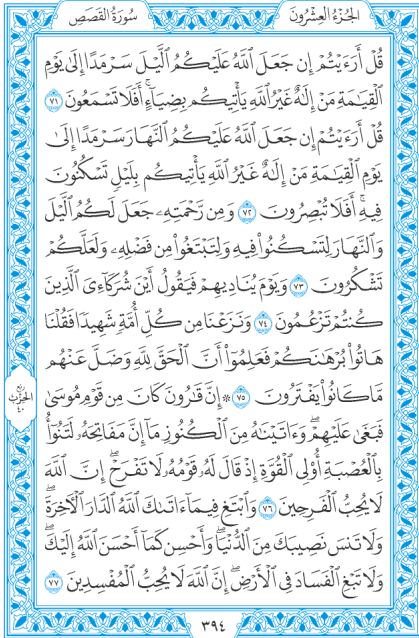 الجُزْءُ العِشْرُونَ
سُورَةُ القَصَصِ
قُلْ أَرَءَيْتُمْ إِن جَعَلَ ٱللَّهُ عَلَيْكُمُ ٱلَّيْلَ سَرْمَدًا إِلَىٰ يَوْمِ
ٱلْقِيَٰمَةِ مَنْ إِلَٰهٌ غَيْرُ ٱللَّهِ يَأْتِيكُم بِضِيَآءٍ ۖ أَفَلَا تَسْمَعُونَ ٧١
قُلْ أَرَءَيْتُمْ إِن جَعَلَ ٱللَّهُ عَلَيْكُمُ ٱلنَّهَارَ سَرْمَدًا إِلَىٰ
يَوْمِ ٱلْقِيَٰمَةِ مَنْ إِلَٰهٌ غَيْرُ ٱللَّهِ يَأْتِيكُم بِلَيْلٍ تَسْكُنُونَ
فِيهِ ۖ أَفَلَا تُبْصِرُونَ ٧٢ وَمِن رَّحْمَتِهِۦ جَعَلَ لَكُمُ ٱلَّيْلَ
وَٱلنَّهَارَ لِتَسْكُنُوا۟ فِيهِ وَلِتَبْتَغُوا۟ مِن فَضْلِهِۦ وَلَعَلَّكُمْ
تَشْكُرُونَ ٧٣ وَيَوْمَ يُنَادِيهِمْ فَيَقُولُ أَيْنَ شُرَكَآءِىَ ٱلَّذِينَ
كُنتُمْ تَزْعُمُونَ ٧٤ وَنَزَعْنَا مِن كُلِّ أُمَّةٍ شَهِيدًا فَقُلْنَا
هَاتُوا۟ بُرْهَٰنَكُمْ فَعَلِمُوٓا۟ أَنَّ ٱلْحَقَّ لِلَّهِ وَضَلَّ عَنْهُم
مَّا كَانُوا۟ يَفْتَرُونَ ٧٥ ۞ إِنَّ قَٰرُونَ كَانَ مِن قَوْمِ مُوسَىٰ
فَبَغَىٰ عَلَيْهِمْ ۖ وَءَاتَيْنَٰهُ مِنَ ٱلْكُنُوزِ مَآ إِنَّ مَفَاتِحَهُۥ لَتَنُوٓأُ
بِٱلْعُصْبَةِ أُو۟لِى ٱلْقُوَّةِ إِذْ قَالَ لَهُۥ قَوْمُهُۥ لَا تَفْرَحْ ۖ إِنَّ ٱللَّهَ
لَا يُحِبُّ ٱلْفَرِحِينَ ٧٦ وَٱبْتَغِ فِيمَآ ءَاتَىٰكَ ٱللَّهُ ٱلدَّارَ ٱلْءَاخِرَةَ ۖ
وَلَا تَنسَ نَصِيبَكَ مِنَ ٱلدُّنْيَا ۖ وَأَحْسِن كَمَآ أَحْسَنَ ٱللَّهُ إِلَيْكَ ۖ
وَلَا تَبْغِ ٱلْفَسَادَ فِى ٱلْأَرْضِ ۖ إِنَّ ٱللَّهَ لَا يُحِبُّ ٱلْمُفْسِدِينَ ٧٧
ربع
الحزب
٤٠
٣٩٤